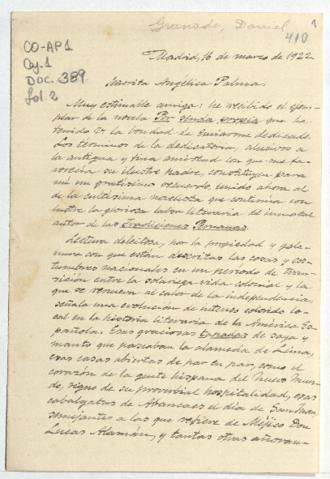 Granada, Daniel
410
CO-AP1
Cj. 1
Doc. 389
fol 2
Madrid, 16 de marzo de 1922.
Señorita Angélica Palma.
Muy estimable amiga: he recibido el ejem-
plar de la novela Por senda propia que ha
tenido V. la bondad de enviarme dedicado.
Los términos de la dedicatoria, alusivos a
la antigua y fina amistad con que me fa-
vorecía su ilustre Padre, constituyen para
mí un gratísimo recuerdo, unido ahora al
de la cultísima novelista que continúa con
lustre la gloriosa labor literaria del inmortal
autor de las Tradiciones Peruanas.
Lectura deleitosa, por la propiedad y gala-
nura con que están descritas las cosas y cos-
tumbres nacionales en un período de tran-
sición entre la solariega vida colonial y la
que se renueva al calor de la independencia,
señala una evolución de intenso colorido lo-
cal en la historia literaria de la América Es-
pañola. Esas graciosas tapadas de saya y
manto que paseaban la alameda de Lima,
esas casas abiertas de par en par, como el
corazón de la gente hispana del Nuevo Mun-
do, signo de su proverbial hospitalidad, esas
cabalgatas de Amancaes el día de San Juan,
semejantes a las que refiere de Méjico Don
Lucas Alamán, y tantas otras añoran-